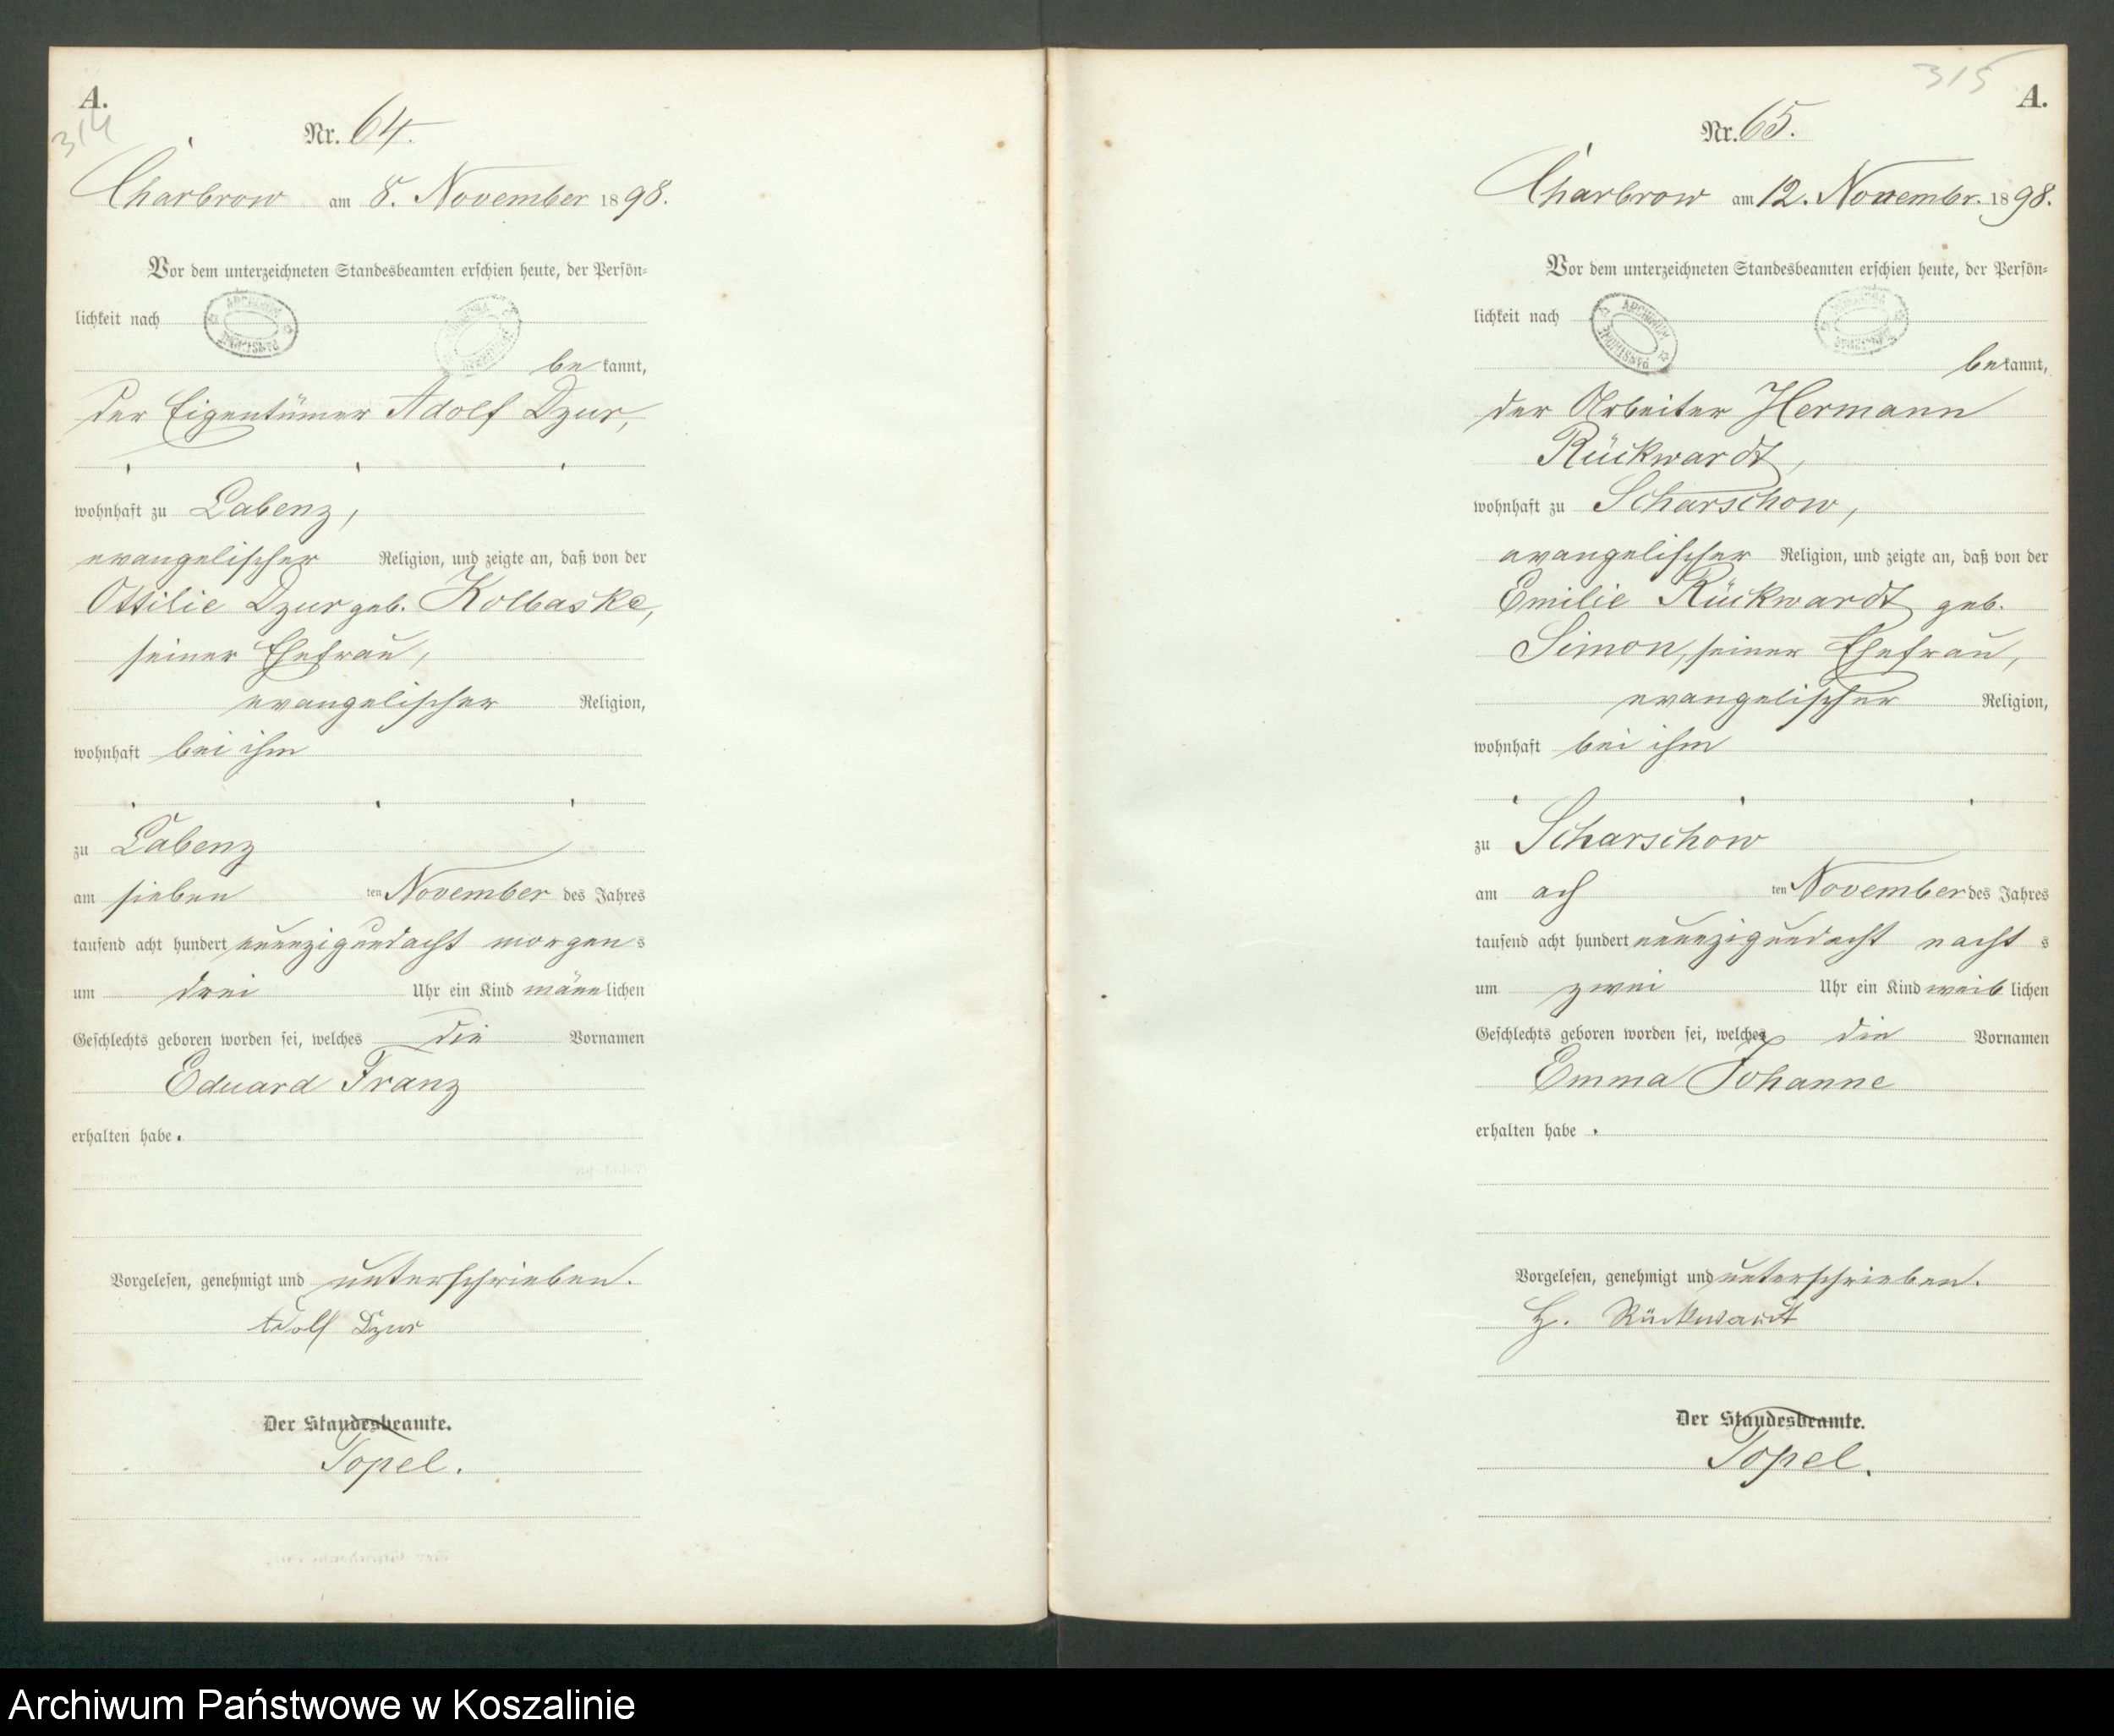 A.
314
Nr. 64.
Charbrow am 8. November 1898.
Vor dem unterzeichneten Standesbeamten erschien heute, der Persön=
lichkeit nach
ARCHIWUM PAŃSTWOWE
bekannt,
der Eigentümer Adolf Dzur,
wohnhaft zu Labenz,
evangelischer Religion, und zeigte an, daß von der
Ottilie Dzur geb. Kolbaske,
seiner Ehefrau,
evangelischer Religion,
wohnhaft bei ihm
zu Labenz
am sieben ten November des Jahres
tausend acht hundert neunzigundacht morgens
um drei Uhr ein Kind männlichen
Geschlechts geboren worden sei, welches die Vornamen
Eduard Franz
erhalten habe.
Vorgelesen, genehmigt und unterschrieben.
Adolf Dzur
Der Standesbeamte.
Topel.
315
A.
Nr. 65.
Charbrow am 12. Novembr. 1898.
Vor dem unterzeichneten Standesbeamten erschien heute, der Persön=
lichkeit nach
ARCHIWUM PAŃSTWOWE
bekannt,
der Arbeiter Hermann
Rückwardt,
wohnhaft zu Scharschow,
evangelischer Religion, und zeigte an, daß von der
Emilie Rückwardt geb.
Simon, seiner Ehefrau,
evangelischer Religion,
wohnhaft bei ihm
zu Scharschow
am ach ten November des Jahres
tausend acht hundert neunzigundacht nachts
um zwei Uhr ein Kind weiblichen
Geschlechts geboren worden sei, welches die Vornamen
Emma Johanne
erhalten habe.
Vorgelesen, genehmigt und unterschrieben.
H. Rückwardt
Der Standesbeamte.
Topel.
Archiwum Państwowe w Koszalinie